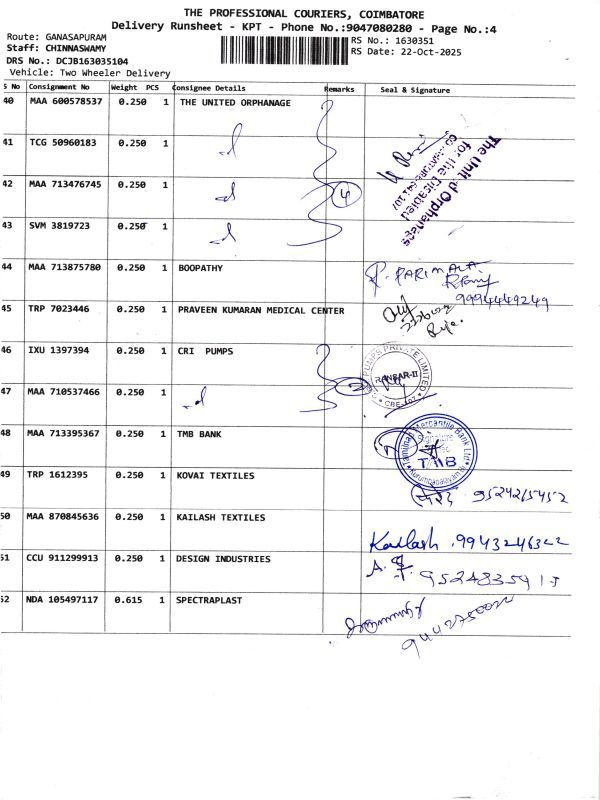 THE PROFESSIONAL COURIERS, COIMBATORE
Delivery Runsheet - KPT - Phone No.:9047080280 - Page No.:4
Route: GANASAPURAM
RS No.: 1630351
Staff: CHINNASWAMY
RS Date: 22-Oct-2025
DRS No.: DCJB163035104
Vehicle: Two Wheeler Delivery
S No Consignment No Weight PCS Consignee Details Remarks Seal & Signature
40 MAA 600578537 0.250 1 THE UNITED ORPHANAGE
41 TCG 50960183 0.250 1
The United Orphanage
for the Disabled
42 MAA 713476745 0.250 1 4
43 SVM 3819723 0.250 1
44 MAA 713875780 0.250 1 BOOPATHY P. PARIMALA
9994449249
45 TRP 7023446 0.250 1 PRAVEEN KUMARAN MEDICAL CENTER
46 IXU 1397394 0.250 1 CRI PUMPS
PUMPS PRIVATE LIMITED
47 MAA 710537466 0.250 1 2
48 MAA 713395367 0.250 1 TMB BANK
Tamilnad Mercantile Bank Ltd
TMB
49 TRP 1612395 0.250 1 KOVAI TEXTILES
50 MAA 870845636 0.250 1 KAILASH TEXTILES
Kailash . 9943246322
51 CCU 911299913 0.250 1 DESIGN INDUSTRIES
52 NDA 105497117 0.615 1 SPECTRAPLAST